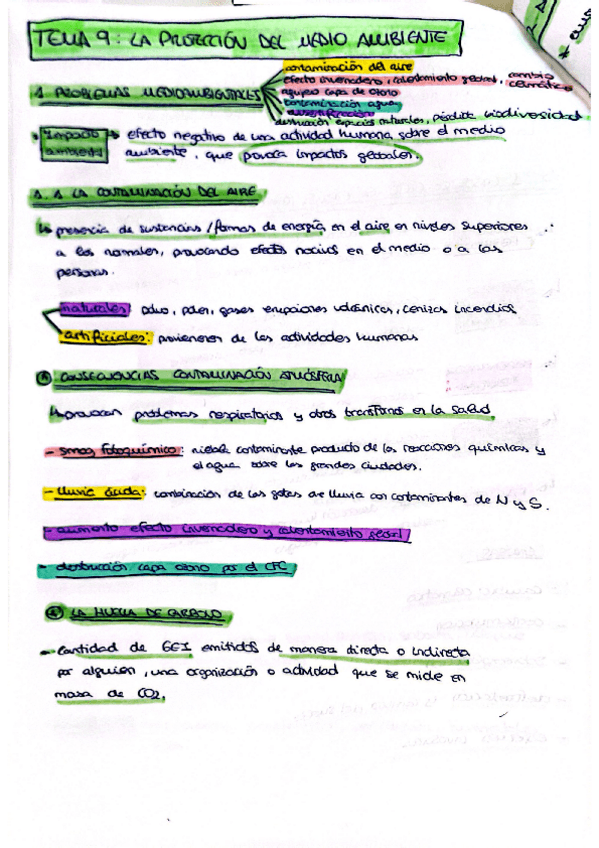 TEMA 9: LA PROTECCIÓN DEL MEDIO AMBIENTE
contaminación del aire
efecto invernadero, calentamiento global, cambio climático
1. PROBLEMAS MEDIOAMBIENTALES
agujero capa de ozono
contaminación agua
desertificación
destrucción espacios naturales, pérdida biodiversidad
impacto ambiental → efecto negativo de una actividad humana sobre el medio
ambiente, que provoca impactos globales.
1.1 LA CONTAMINACIÓN DEL AIRE
↳ presencia de sustancias / formas de energía en el aire en niveles superiores
a los normales, provocando efectos nocivos en el medio o a las
personas.
naturales: polvo, polen, gases erupciones volcánicas, cenizas incendios
artificiales: provienen de las actividades humanas
CONSECUENCIAS CONTAMINACIÓN ATMÓSFERA
↳ provocan problemas respiratorios y otros trastornos en la salud
- smog fotoquímico: niebla contaminante producto de las reacciones químicas y
el agua sobre las grandes ciudades.
- lluvia ácida: combinación de las gotas de lluvia con contaminantes de N y S.
- aumento efecto invernadero y calentamiento global
- destrucción capa ozono por el CFC
LA HUELLA DE CARBONO
- Cantidad de GEI emitidos de manera directa o indirecta
por alguien, una organización o actividad que se mide en
masa de CO2.